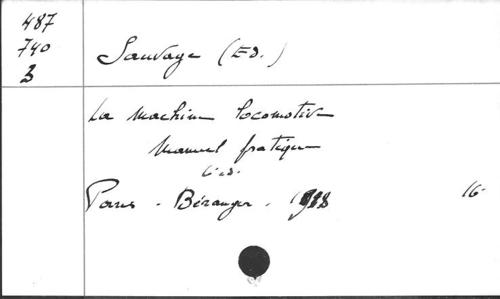 487
740
3
Sauvage (Ed.)
La machine locomotive
Manuel pratique
6 ed.
Paris - Béranger - 1918 16-